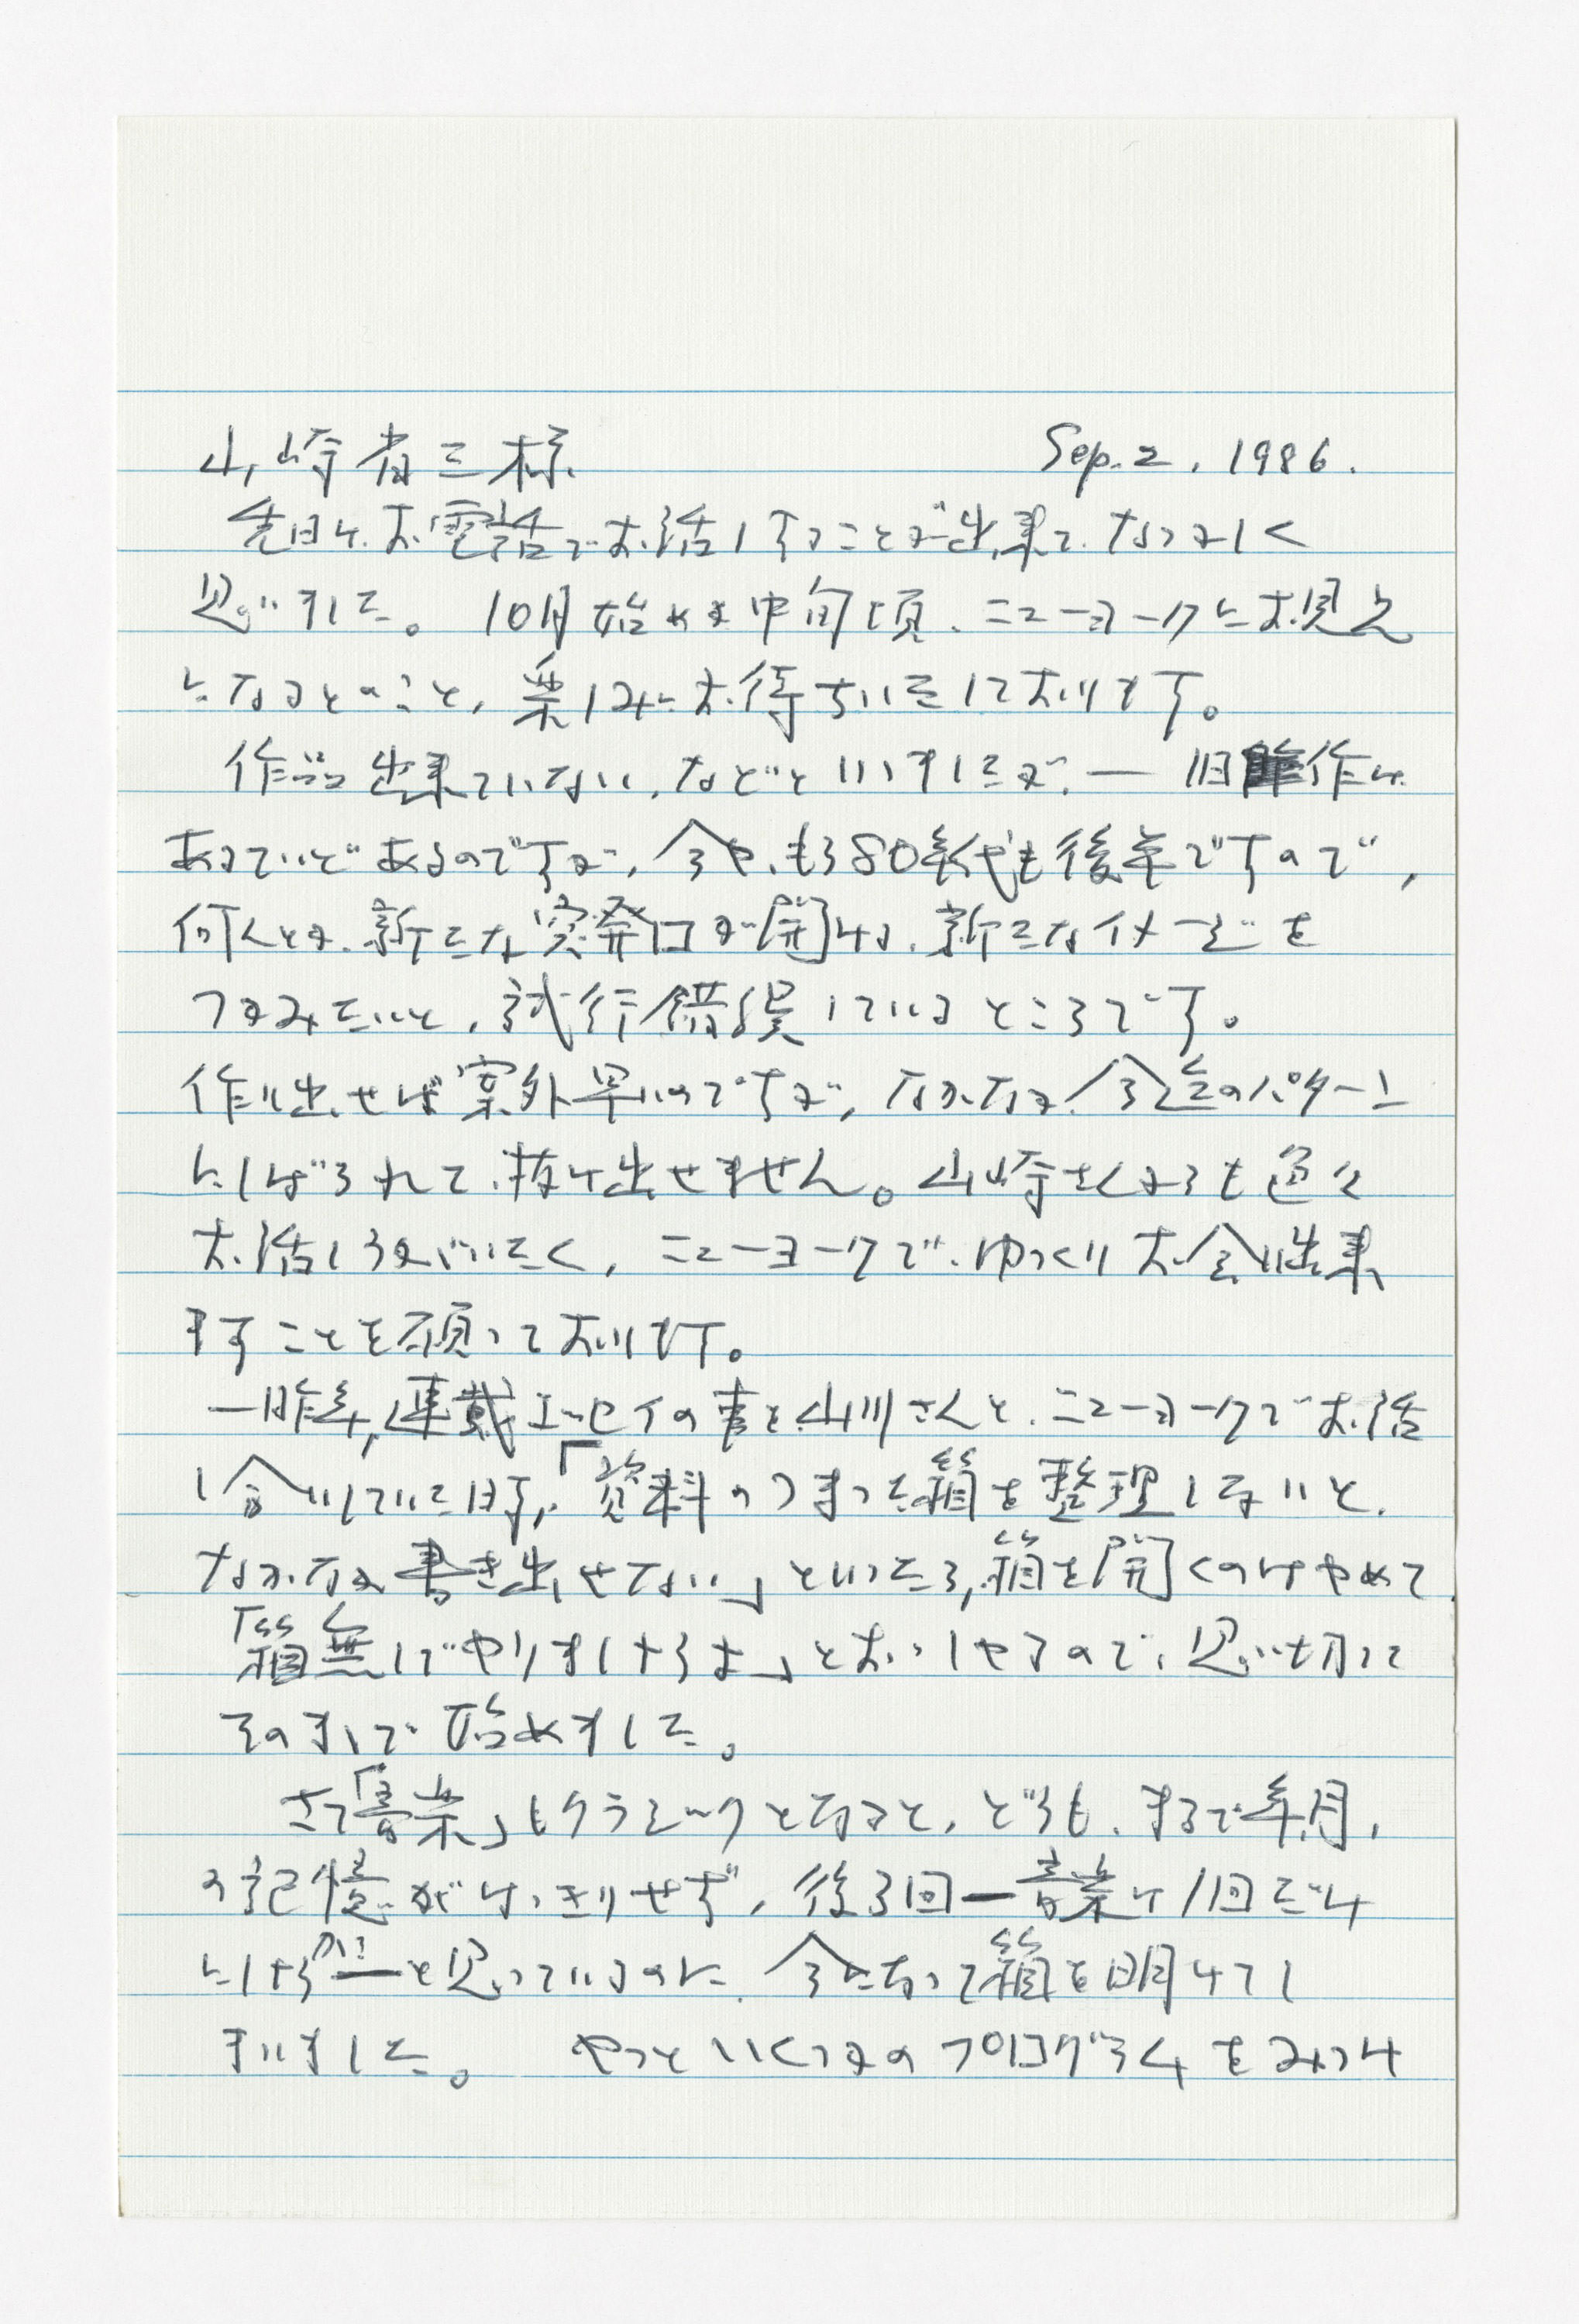 山崎省三様 Sep. 2, 1986.
先日は、お電話でお話しすることが出来て、なつかしく
思いました。10月始めか中旬頃、ニューヨークにお見え
になるとのこと、楽しみにお待ちいたしております。
作品出来ていない、などといいましたが、— 旧作は
あるていどあるのですが、今や、もう80年代も後半ですので、
何んとか、新たな突発口が開ける、新たなイメージを
つかみたいと、試行錯誤しているところです。
作り出せば案外早いのですが、なかなか、今迄のパターン
にしばられて、抜け出せません。山崎さんからも色々
お話しうかがいたく、ニューヨークで、ゆっくりお会い出来
ますことを願っております。
一昨年、連載エッセイの事を山川さんと、ニューヨークでお話
し合いしていた時、「資料のつまった箱を整理しないと、
なかなか書き出せない」といったら、箱を開くのはやめて
「箱無しでやりましょうよ」とおっしゃるので、思い切って
そのまゝで始めました。
さて「音楽」もクラシックとなると、どうも、まるで年月、
の記憶がはっきりせず、後3回—音楽は1回だけ
にしようか!—と思っているのに、今になって箱を開けてし
まいました。 やっといくつかのプログラムをみつけ